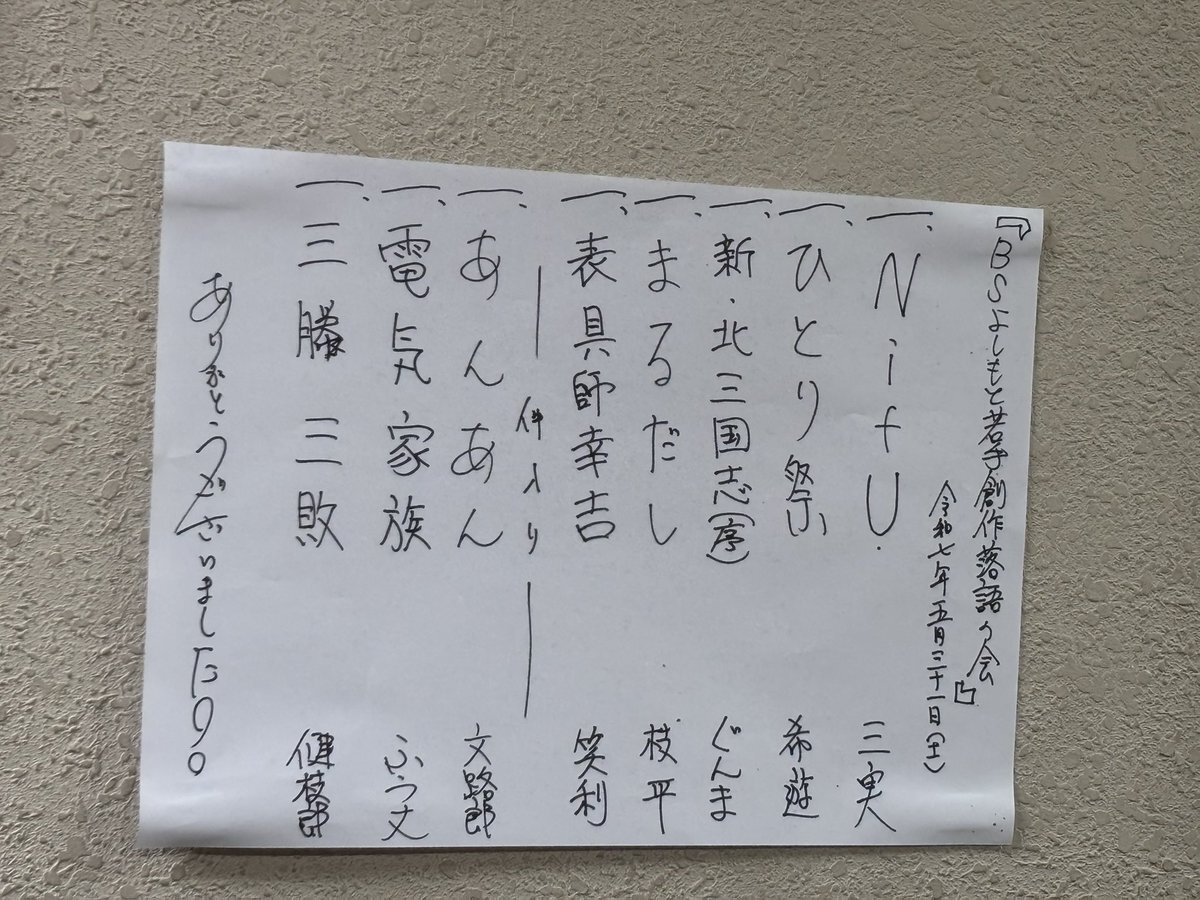 『BSよしもと若手創作落語の会』
令和七年五月三十一日(土)
一、NifU. 三実
一、ひとり祭 希遊
一、新・北三国志(序) ぐんま
一、まるだし 枝平
一、表具師幸吉 笑利
― 仲入り ―
一、あんあん 文路郎
一、電気家族 ふう丈
一、三勝三敗 健枝郎
ありがとうございました!!。